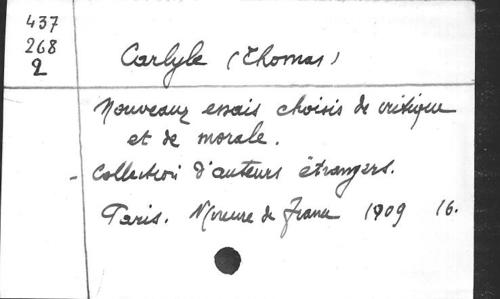 437
268
2
Carlyle (Thomas)
Nouveaux essais choisis de critique
et de morale.
- Collection d'auteurs étrangers.
Paris. Mercure de France 1909 16.